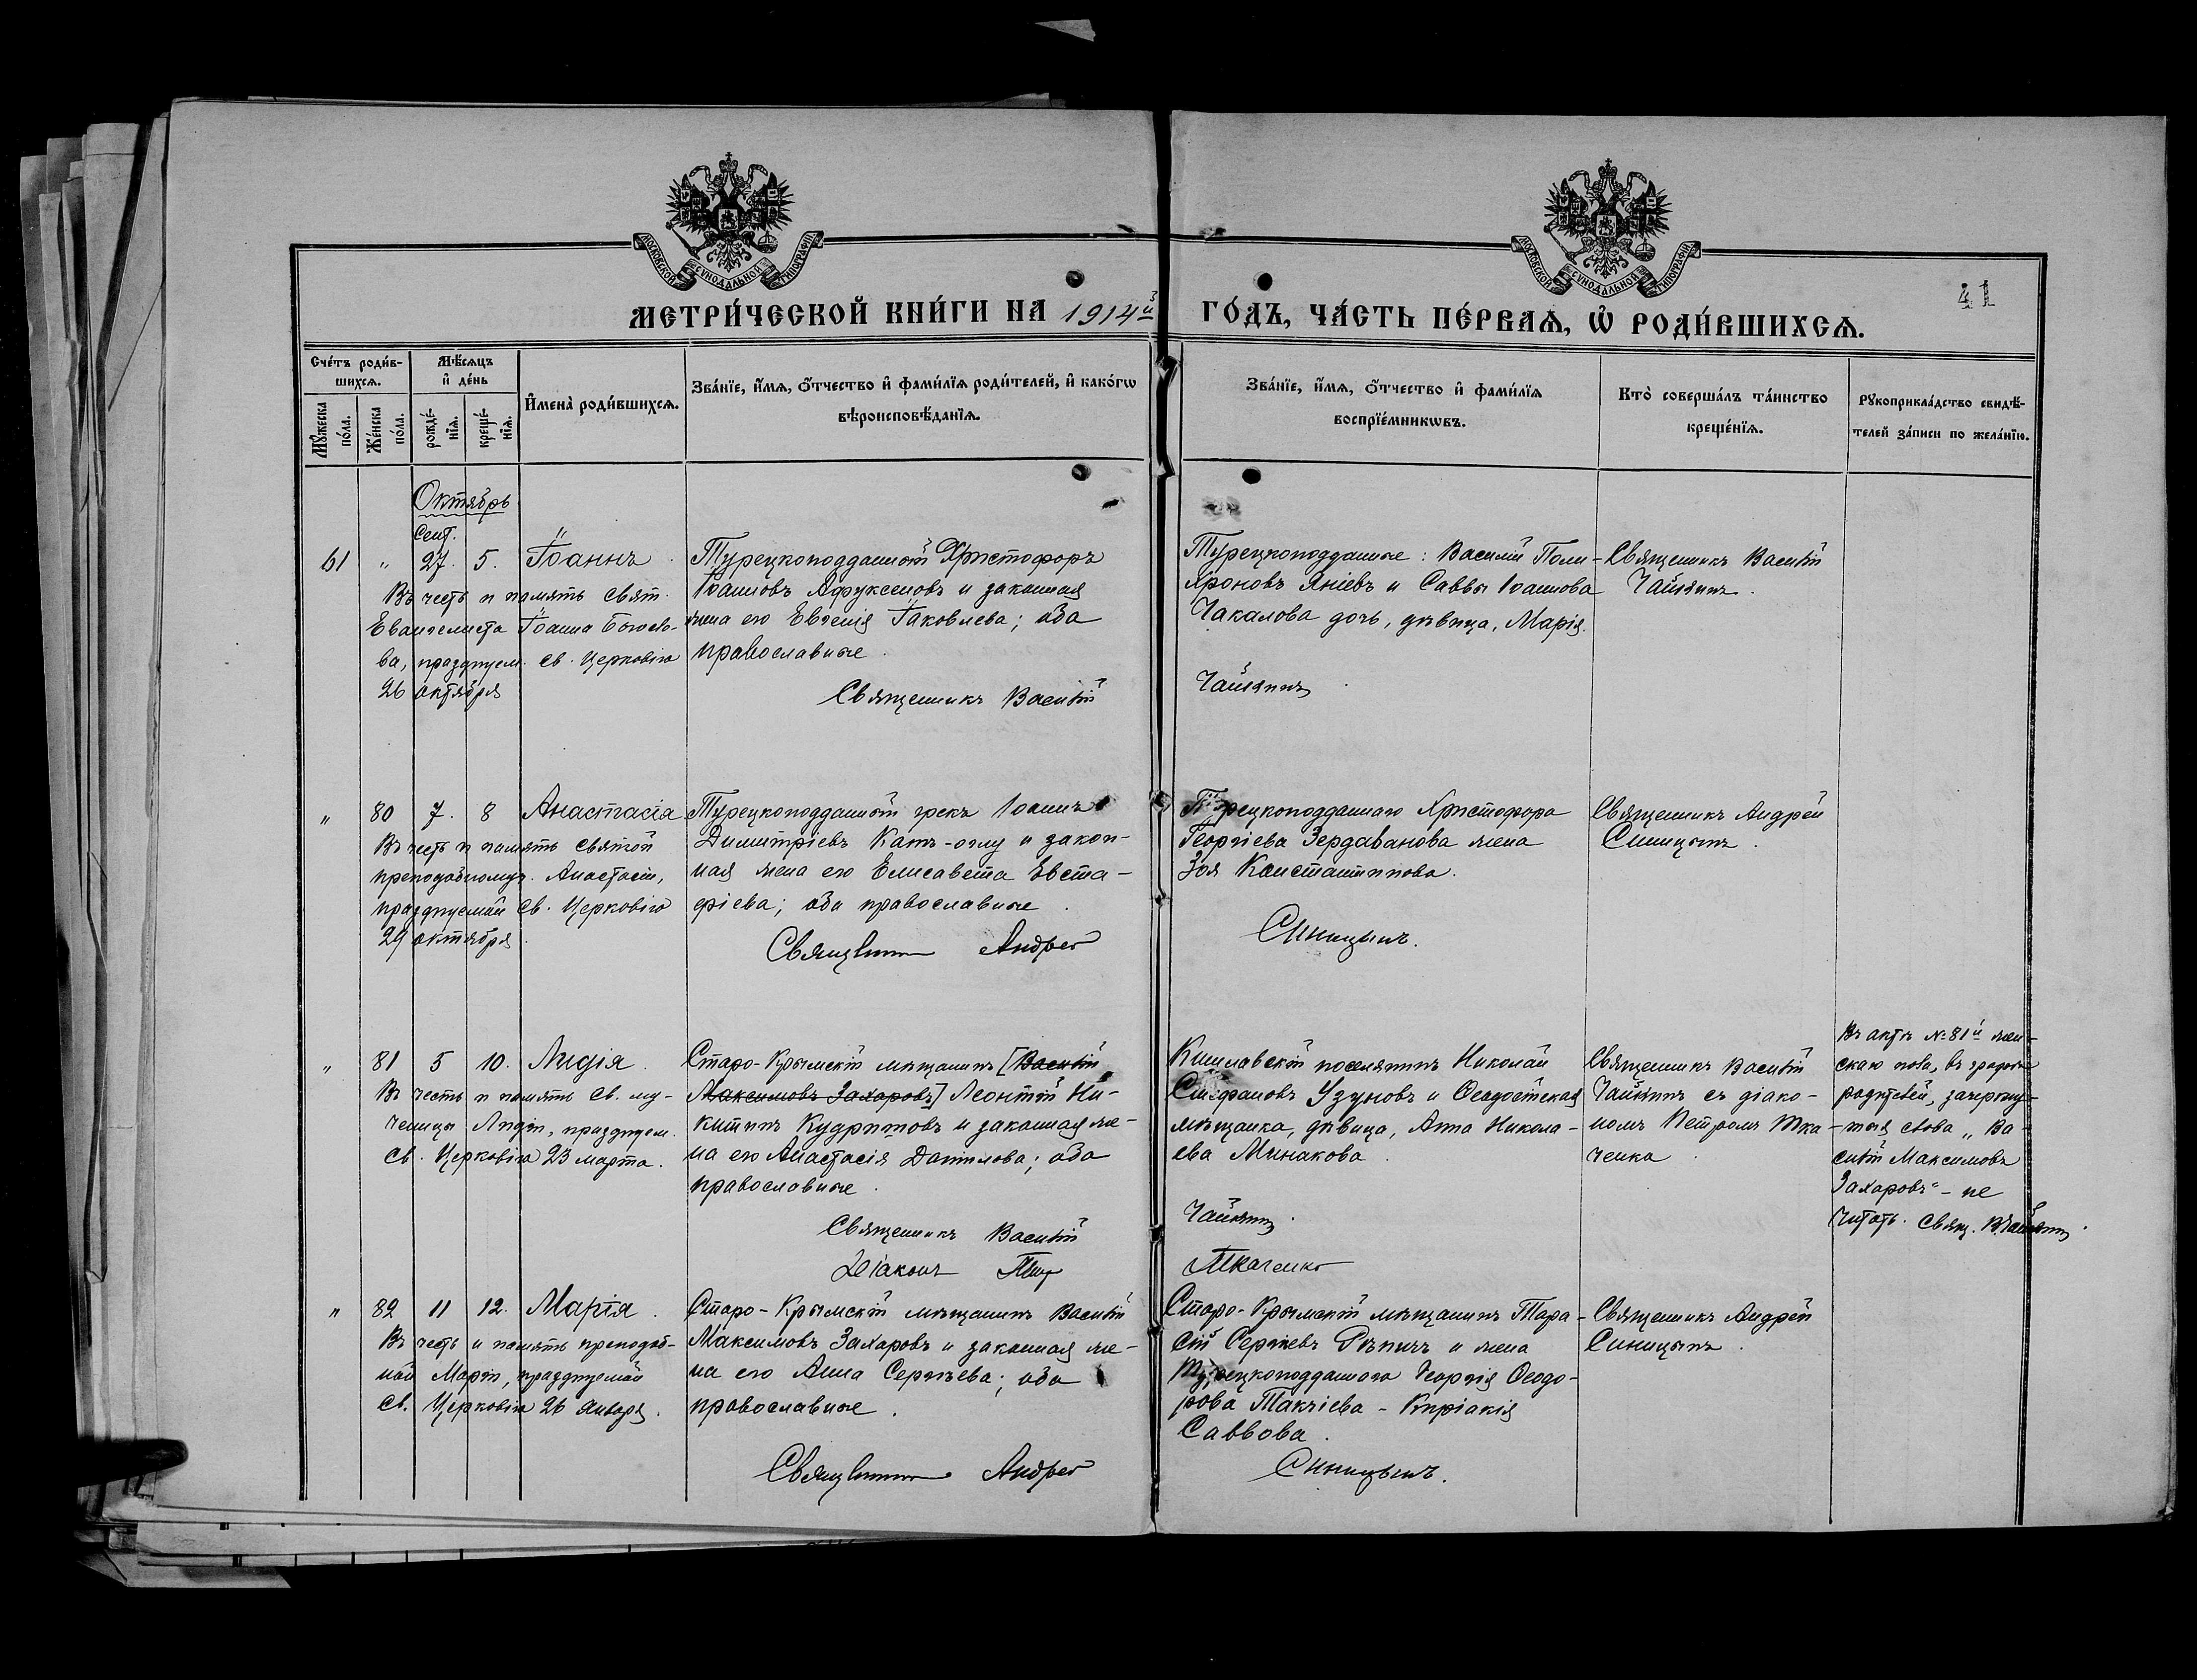 МОСКОВСКОЙ СѴНОДАЛЬНОЙ ТИПОГРАФІИ
МОСКОВСКОЙ СѴНОДАЛЬНОЙ ТИПОГРАФІИ
МЕТРИ́ЧЕСКОЙ КНИ́ГИ НА 1914й ГО́ДЪ, ЧА́СТЬ ПЕ́РВАѦ, Ѡ҆ РОДИ́ВШИХСѦ.
41
Сче́тъ роди́в-
шихсѧ.
Мѣ́сѧцъ
и҆ де́нь
Мꙋ́жеска
по́ла.
Же́нска
по́ла.
рожде́-
нїѧ.
креще́-
нїѧ.
И҆мена̀ роди́вшихсѧ.
Зва́нїе, и҆́мѧ, ѻ҆́тчество и҆ фами́лїѧ роди́телей, и҆ како́гѡ
вѣроисповѣ́данїѧ.
Зва́нїе, и҆́мѧ, ѻ҆́тчество и҆ фами́лїѧ
воспрїе́мникѡвъ.
Кто̀ соверша́лъ та́инство
креще́нїѧ.
Рꙋкоприкла́дство свидѣ́-
телей за́писи по жела́нїю.
Октябрь
Сент.
61 " 27. 5. Іоаннъ.
Въ честь и память свят.
Евангелиста Іоанна Богосло-
ва, празднуем. св. Церковію
26 октября
Турецкоподданный Христофоръ
Іоанновъ Афуксениовъ и законная
жена его Евгенія Іаковлева; оба
православные.
Священникъ Василій
Турецкоподданные: Василій Поли-
хроновъ Яніевъ и Саввы Іоаннова
Чакалова дочь, дѣвица, Марія.
Чайкинъ.
Священникъ Василій
Чайкинъ.
" 80 7. 8 Анастасія
Въ честь и память святой
преподобномуч. Анастасіи,
празднуемой св. Церковію
29 октября.
Турецкоподданный грекъ Іоаннъ
Димитріевъ Катъ-оглу и закон-
ная жена его Елисавета Евста-
фіева; оба православные.
Священникъ Андрей
Турецкоподданнаго Христофора
Георгіева Зердаванова жена
Зоя Константинова.
Синицынъ.
Священникъ Андрей
Синицынъ.
" 81 5 10. Лидія.
Въ честь и память св. му-
ченицы Лидіи, празднуем.
св. Церковію 23 марта.
Старо-Крымскій мѣщанинъ [Василій
Максимовъ Захаровъ] Леонтій Ни-
китинъ Кудритовъ и законная же-
на его Анастасія Данилова; оба
православные.
Священникъ Василій
Діаконъ Петръ
Кишлавскій поселянинъ Николай
Стефановъ Узуновъ и Ѳеодосійская
мѣщанка, дѣвица, Анна Никола-
ева Минакова.
Чайкинъ.
Ткаченко
Священникъ Василій
Чайкинъ съ діако-
номъ Петромъ Тка-
ченко.
Въ актѣ №81й жен-
скаго пола, въ графѣ
родителей, зачеркну-
тыя слова „Ва-
силій Максимовъ
Захаровъ" - не
читать. Свящ. В. Чайкинъ.
" 82 11 12. Марія.
Въ честь и память преподоб-
ной Маріи, празднуемой
св. Церковію 26 Января.
Старо-Крымскій мѣщанинъ Василій
Максимовъ Захаровъ и законная же-
на его Анна Сергѣева; оба
православные.
Священникъ Андрей
Старо-Крымскій мѣщанинъ Тара-
сій Сергѣевъ Рѣпичъ и жена
Турецкоподданнаго Георгія Ѳеодо-
рова Такчіева - Киріакія
Саввова.
Синицынъ.
Священникъ Андрей
Синицынъ.